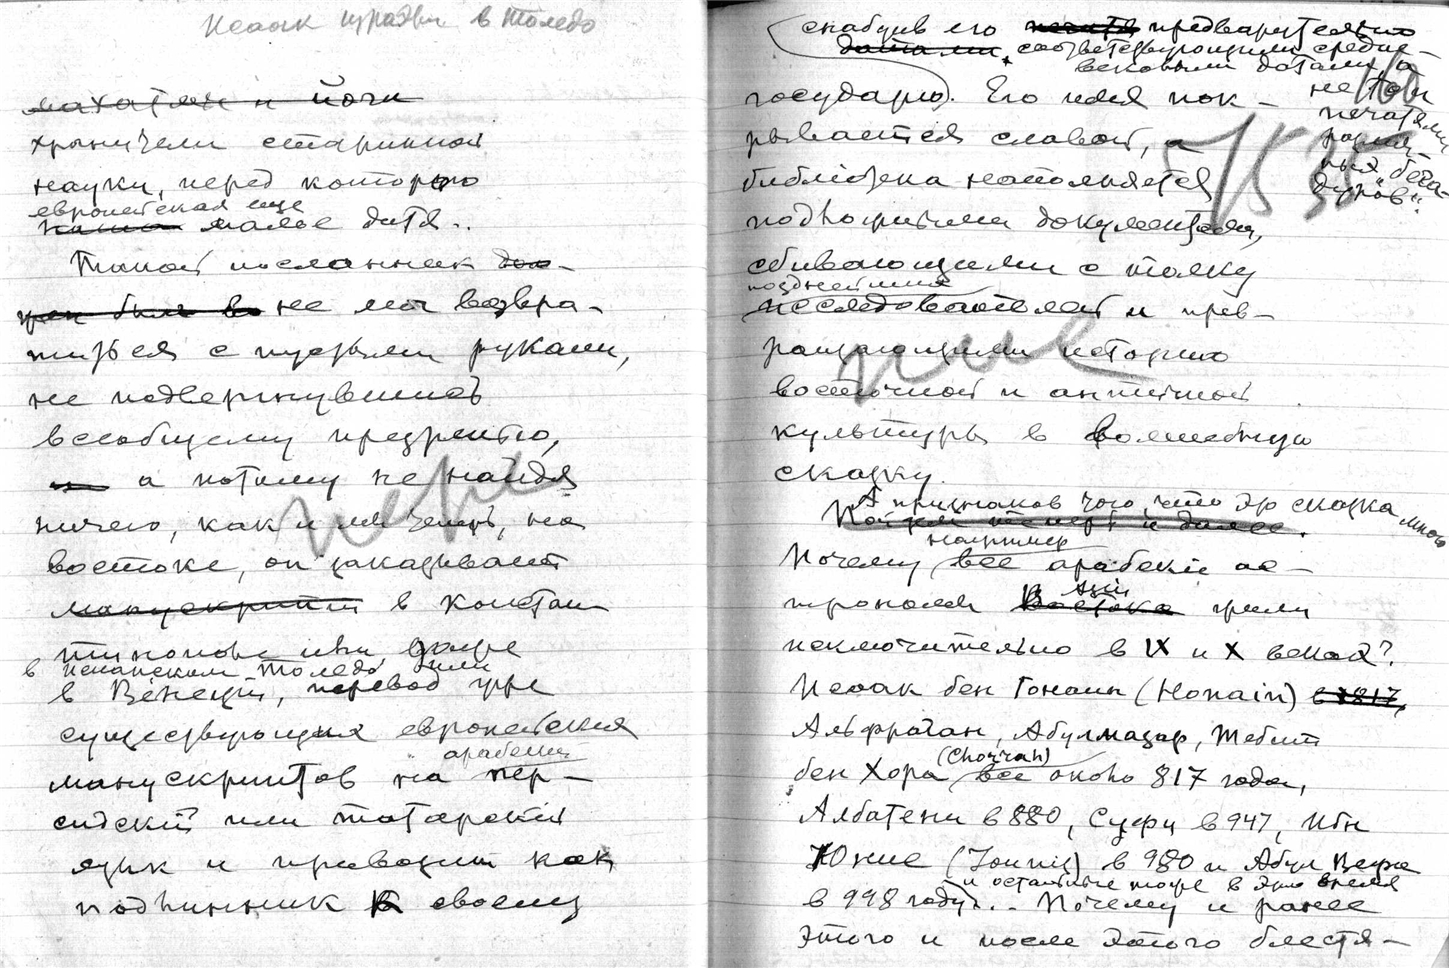 Исаак изразви в Толедо
махатмы и йоги
хранители старинной
науки, перед которою
европейская еще
наша малое дитя..
Такой посланник дол-
жен был в не мог возвра-
титься с пустыми руками,
не подвергнувшись
всеобщему презрению,
а потому не найдя
ничего, как и мы теперь, на
востоке, он заказывает
манускрипты в Констан
тинополе или даже
в испанском Толедо или
в Венеции, перевод уже
существующих европейских
арабский
манускриптов на пер-
сидский или татарский
язык и привозит как
подлинник к своему
снабдив его предварительно
датами, соответствующими средне-
вековыми датами, а
не то и
печатями
разных
„богдыханов“.
160
государю. Его имя пок-
рывается славой, а
библиотека наполняется
подложными документами,
сбивающими с толку
позднейших
исследователей и прев-
ращающими историю
восточной и античной
культуры в волшебную
сказку.
А признаков того, что это сказка много
Пойдем теперь и далее.
например
Почему все арабские ас-
Азии
трономы Востока жили
исключительно в IX и X веках?
Исаак бен Гонаин (Honain) в 817,
Альфраган, Абулмазар, Тебит
(Chorrah)
бен Хора все около 817 года,
Албатени в 880, Суфи в 947, Ибн
Юнис (Iounis) в 980 и Абул Вефа
и остальные тоже в это время
в 998 году?.. Почему и ранее
этого и после этого блестя-